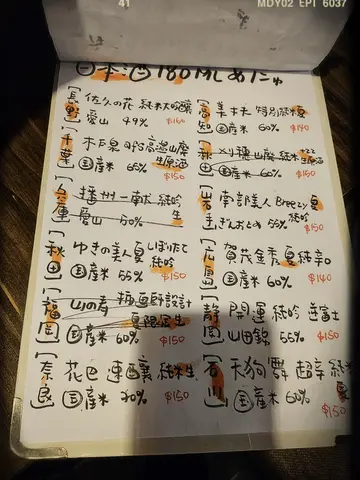 41
MDY02 EPI 6037
日本酒180mlあたり
[長野] 佐久の花 純米大吟醸
愛山 49% $160
[千葉] 木戸泉 高温山廃
生原酒
国産米 65% $150
[兵庫] 播州一 純吟
愛山 50% 生
[秋田] ゆきの美人 夏しぼりたて
純吟
国産米 55% $150
[福岡] 山の寿 設計
夏限定生
国産米 60% $150
[奈良] 花巴 速醸 純米生
国産米 70% $150
[高知] 美丈夫 特別純米 夏
国産米 60% $140
[秋田] 山廃 純米
生原酒
国産米 60% $150
[岩手] 南部美人 Breezy 夏
純吟
ぎんおとめ 55% $150
[広島] 賀茂金秀 夏純 辛口
国産米 60% $140
[静岡] 開運 純吟 逆富士
山田錦 55% $150
[石川] 天狗舞 超辛 純
国産米 60% $150